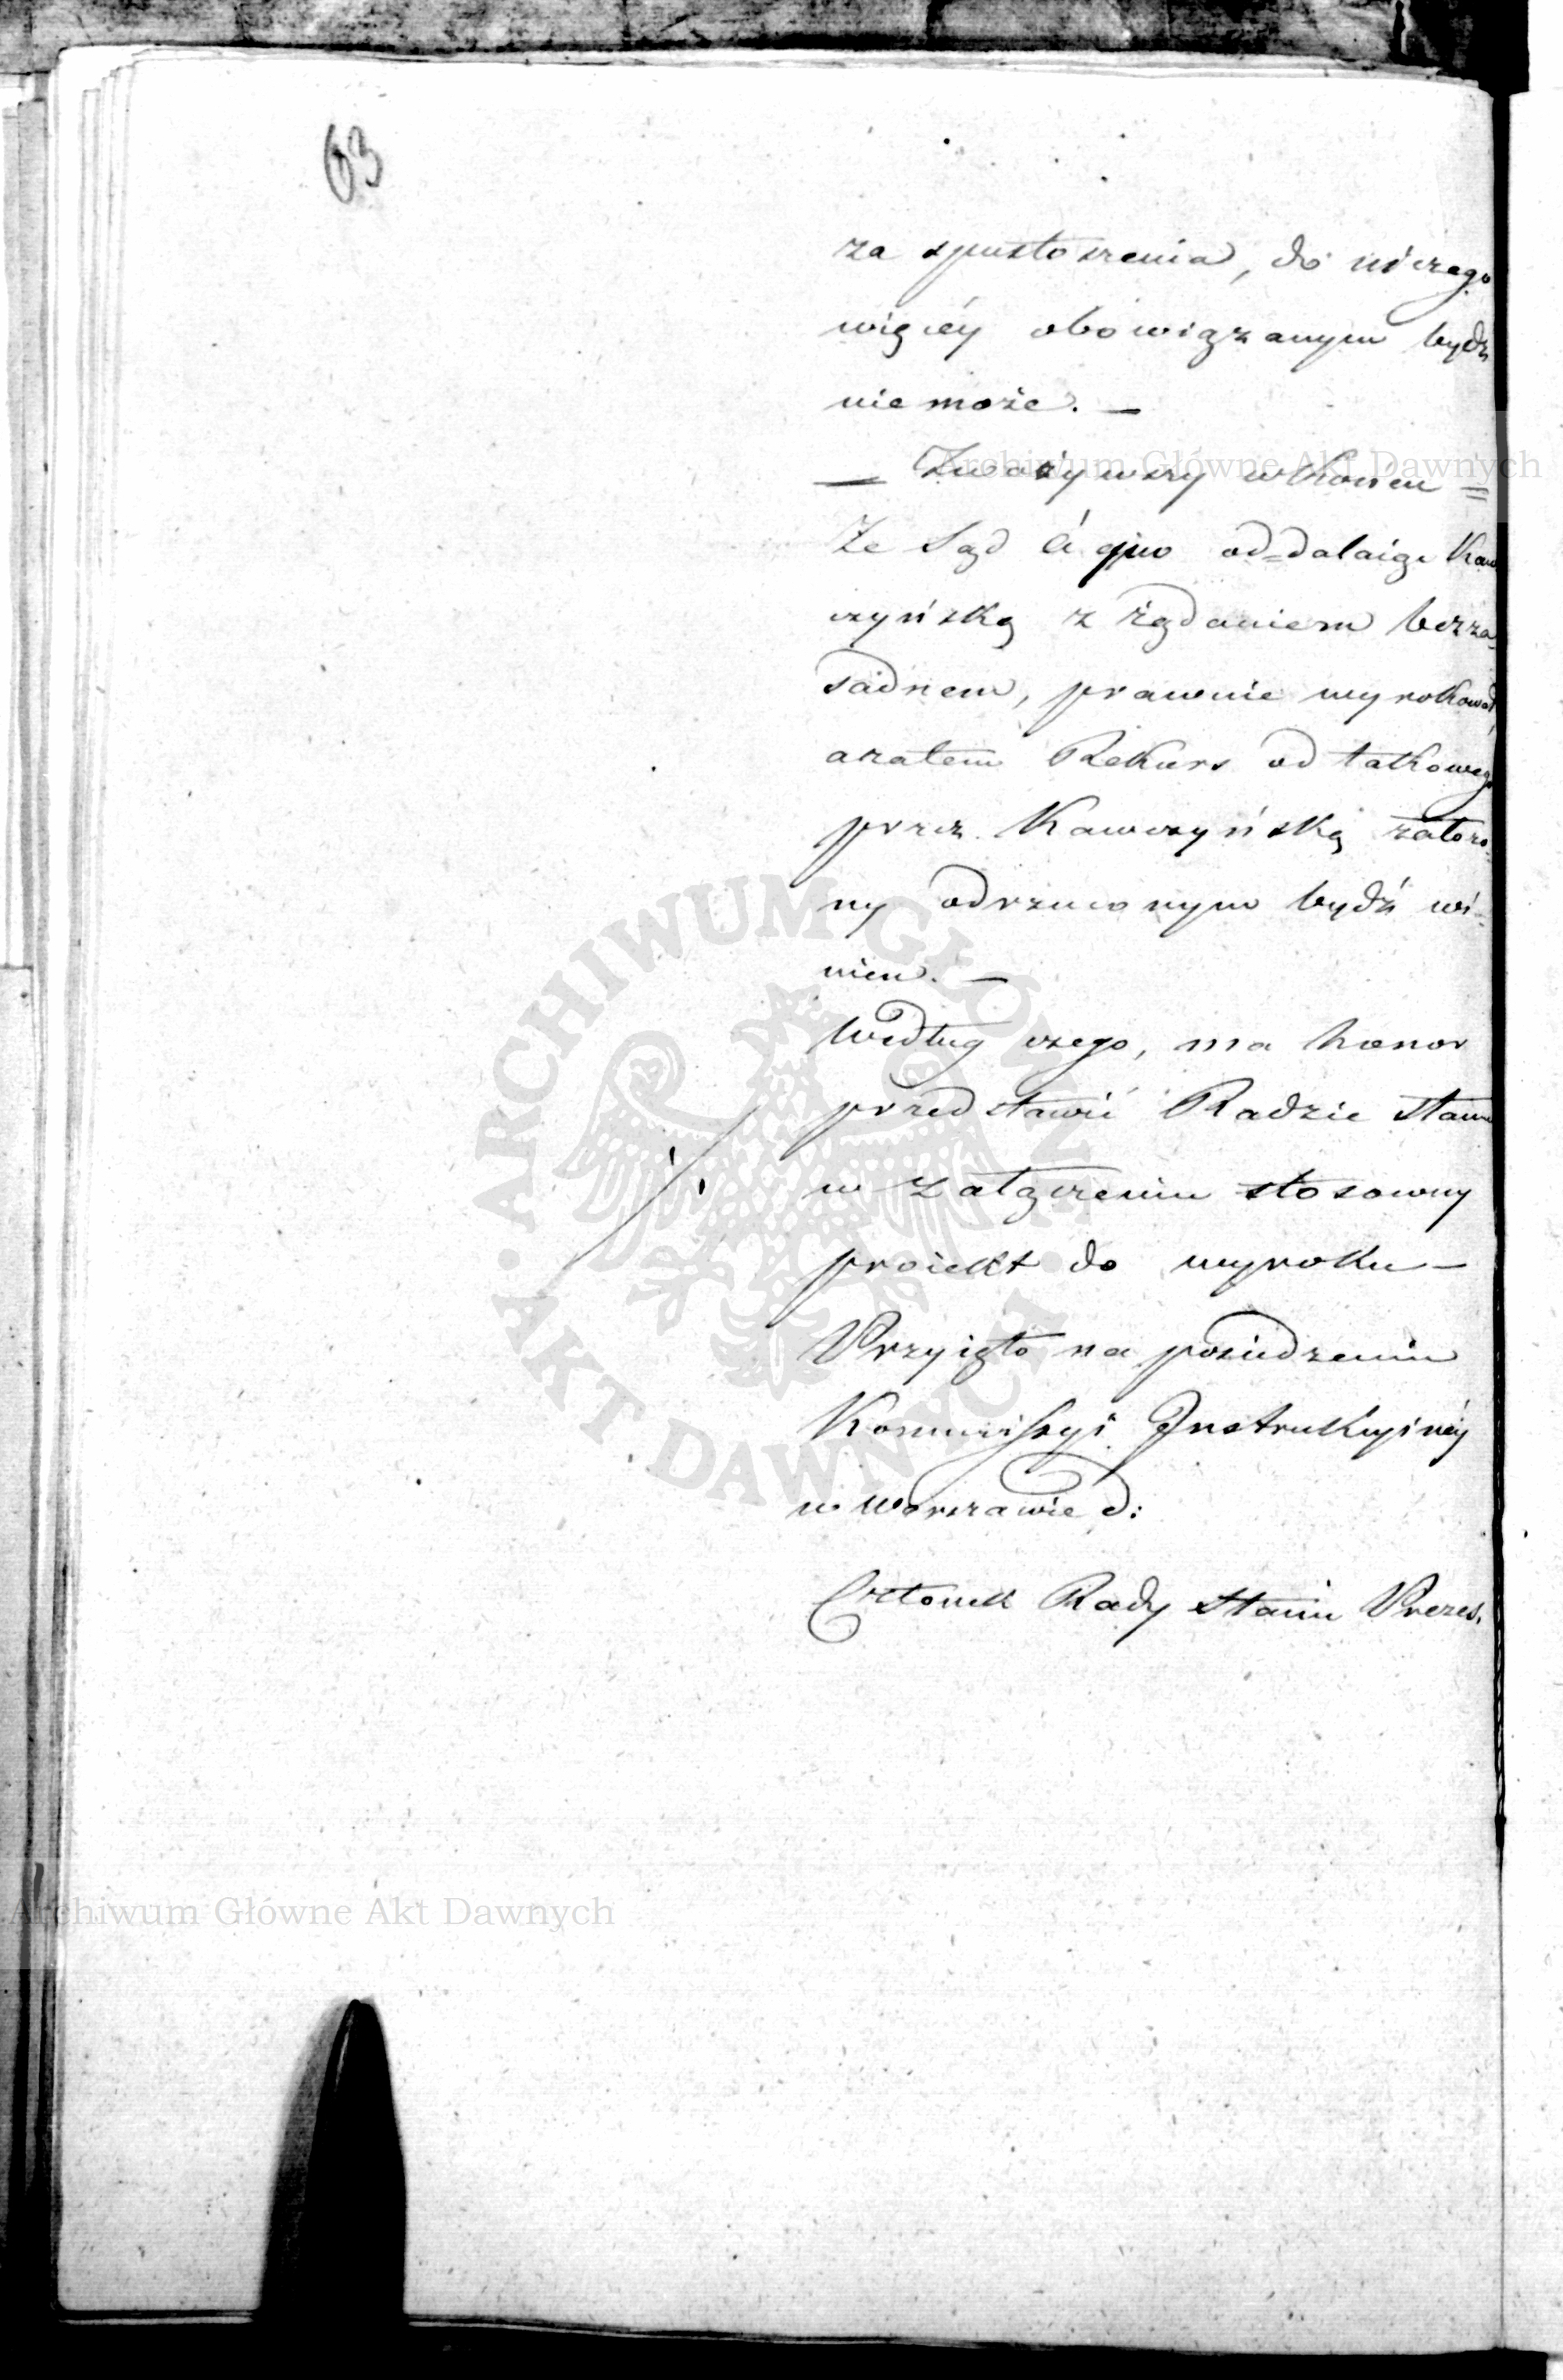 63
za spustoszenia, do niczego
więcéy obowiązanym bydz
nie może. —
— Zważywszy w koncu =
Ze Sąd à quo od=dalaiąc Kaw
czyńską z żądaniem bezza-
sadnem, prawnie wyrokował,
azatem Rekurs od takowego
przez Kawczyńską założo-
ny odrzuconym bydź wi-
nien. —
Według czego, ma honor
przedstawić Radzie Stanu
w załączeniu stosowny
proiekt do wyroku —
Przyięto na posiedzeniu
Kommissyi Instrukcyinéy
w Warszawie d:
Członek Rady Stanu Prezes.
Archiwum Główne Akt Dawnych
ARCHIWUM GŁÓWNE · AKT DAWNYCH ·
Archiwum Główne Akt Dawnych